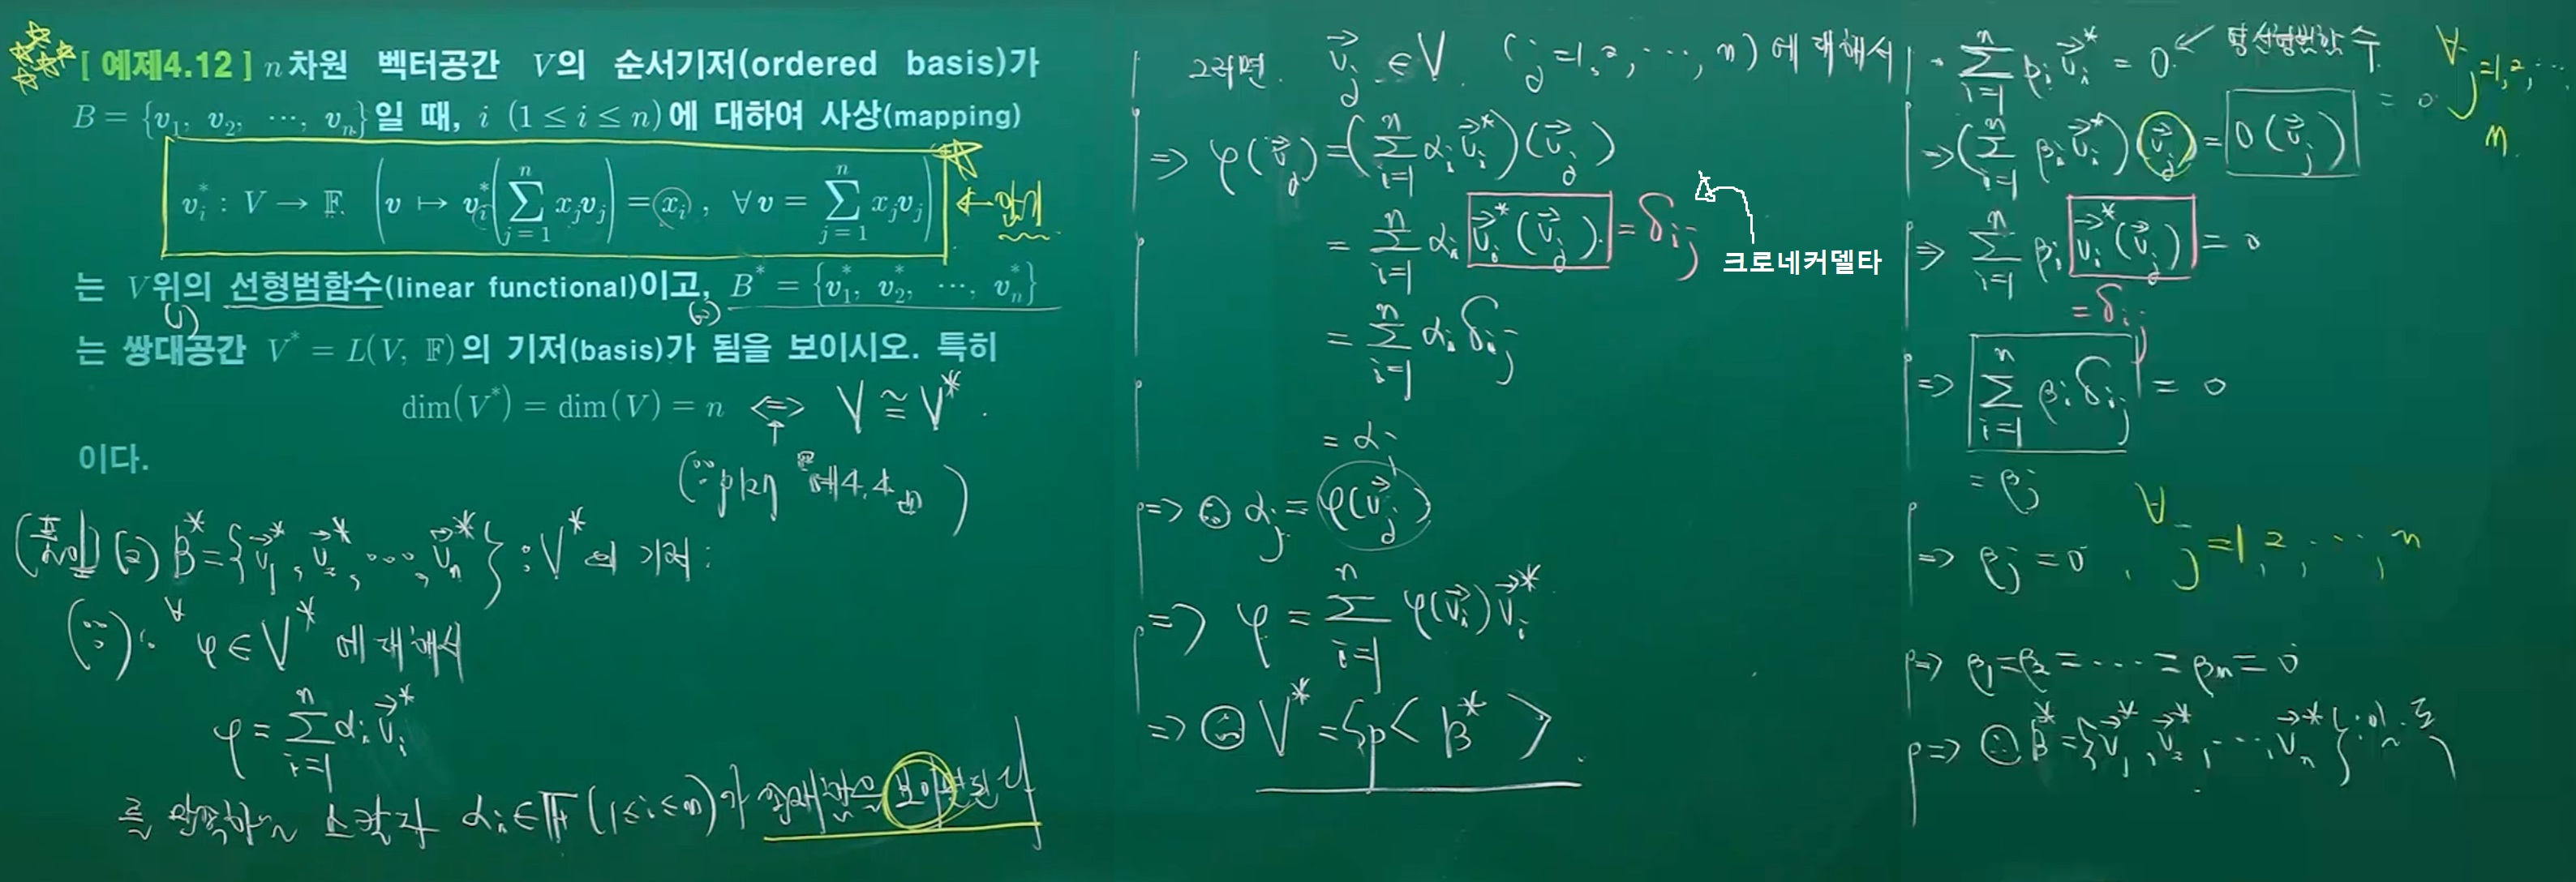 [ 예제4.12 ] n차원 벡터공간 V의 순서기저(ordered basis)가
B = {v₁, v₂, ⋯, vₙ}일 때, i (1 ≤ i ≤ n)에 대하여 사상(mapping)
vᵢ* : V → 𝔽 ( v ↦ vᵢ*( ∑_{j=1}^{n} xⱼvⱼ ) = xᵢ , ∀v = ∑_{j=1}^{n} xⱼvⱼ ) ← 암기
는 V위의 선형범함수(linear functional)이고, B* = {v₁*, v₂*, ⋯, vₙ*}
(1) (2)
는 쌍대공간 V* = L(V, 𝔽)의 기저(basis)가 됨을 보이시오. 특히
dim(V*) = dim(V) = n ⇔ V ≅ V*.
이다.
(풀이) (2) B* = {v⃗₁*, v⃗₂*, ⋯, v⃗ₙ*} : V*의 기저:
(∵) ∀φ ∈ V* 에 대해서
φ = ∑_{i=1}^{n} αᵢ v⃗ᵢ*
를 만족하는 스칼라 αᵢ ∈ 𝔽 (1 ≤ i ≤ n)가 존재함을 보이면 된다
그러면. v⃗ⱼ ∈ V (j=1, 2, ⋯, n)에 대해서
⇒ φ(v⃗ⱼ) = (∑_{i=1}^{n} αᵢ v⃗ᵢ*)(v⃗ⱼ)
= ∑_{i=1}^{n} αᵢ v⃗ᵢ*(v⃗ⱼ) = δᵢⱼ
크로네커델타
= ∑_{i=1}^{n} αᵢ δᵢⱼ
= αⱼ
⇒ ∴ αⱼ = φ(v⃗ⱼ)
⇒ φ = ∑_{i=1}^{n} φ(v⃗ᵢ) v⃗ᵢ*
⇒ ∴ V* = Sp< B* >
· ∑_{i=1}^{n} βᵢ v⃗ᵢ* = 0 ← 영선형범함수
⇒ (∑_{i=1}^{n} βᵢ v⃗ᵢ*)(v⃗ⱼ) = 0(v⃗ⱼ) = 0 ∀j=1, 2, ⋯ n.
⇒ ∑_{i=1}^{n} βᵢ v⃗ᵢ*(v⃗ⱼ) = 0
= δᵢⱼ
⇒ ∑_{i=1}^{n} βᵢ δᵢⱼ = 0
= βⱼ
⇒ βⱼ = 0, ∀j=1, 2, ⋯, n
⇒ β₁ = β₂ = ⋯ = βₙ = 0
⇒ ∴ B* = {v⃗₁*, v⃗₂*, ⋯, v⃗ₙ*} : 일.독